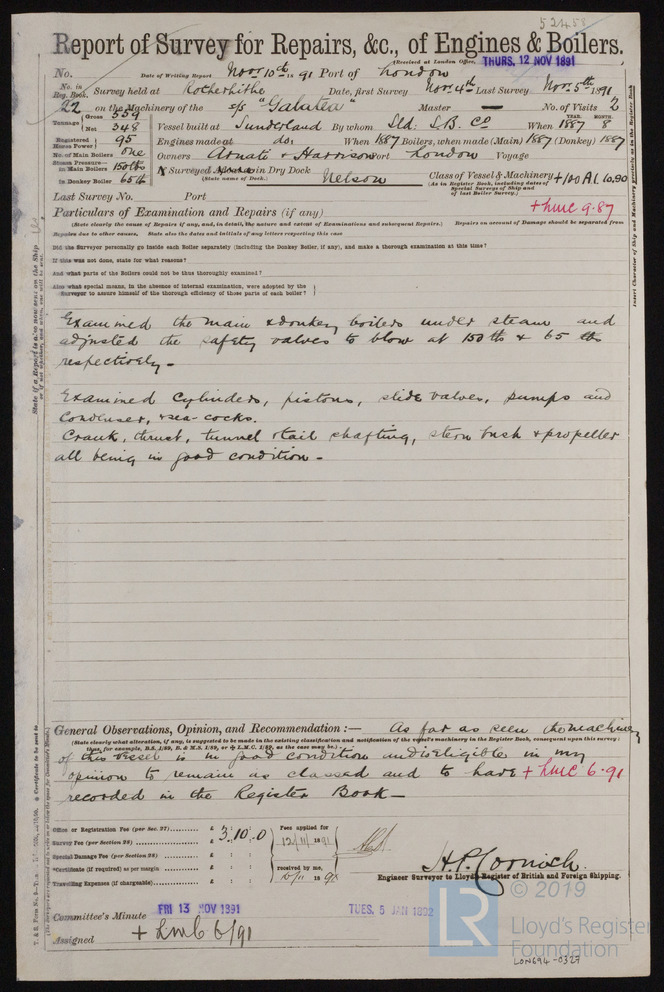 52458
Report of Survey for Repairs, &c., of Engines & Boilers.
(Received at London Office, THURS. 12 NOV 1891
No. Date of Writing Report Novr 10th 1891 Port of London
No. in Reg. Book. Survey held at Rotherhithe Date, first Survey Novr 4th Last Survey Novr 5th 1891
22 on the Machinery of the s/s "Galatea" Master — No. of Visits 2
Tonnage Gross 559 Net 348 Vessel built at Sunderland By whom Sld: S.B. Co When YEAR. 1887 MONTH. 8
Registered Horse Power 95 Engines made at do. When 1887 Boilers, when made (Main) 1887 (Donkey) 1887
No. of Main Boilers One Owners & Harrison Port London Voyage
Steam Pressure— in Main Boilers 150 lbs Surveyed in Dry Dock Class of Vessel & Machinery +100A1.10.90
in Donkey Boiler 65 lb (State name of Dock.) Nelson (As in Register Book, including dates of Special Surveys of Ship and of last Boiler Survey.)
Last Survey No. Port + LMC 9.87
Particulars of Examination and Repairs (if any)
(State clearly the cause of Repairs if any, and, in detail, the nature and extent of Examinations and subsequent Repairs.) Repairs on account of Damage should be separated from
Repairs due to other causes. State also the dates and initials of any letters respecting this case
Did the Surveyor personally go inside each Boiler separately (including the Donkey Boiler, if any), and make a thorough examination at this time?
If this was not done, state for what reasons?
And what parts of the Boilers could not be thus thoroughly examined?
Also what special means, in the absence of internal examination, were adopted by the
Surveyor to assure himself of the thorough efficiency of those parts of each boiler?
Examined the main & donkey boilers under steam and
adjusted the safety valves to blow at 150 lbs & 65 lbs
respectively -
Examined Cylinders, pistons, slide valves, pumps and
Condenser, & sea-cocks.
Crank, thrust, tunnel & tail shafting, stern bush & propeller
all being in good condition -
General Observations, Opinion, and Recommendation :— As far as seen the machinery
(State clearly what alteration, if any, is suggested to be made in the existing classification and notification of the vessel's machinery in the Register Book, consequent upon this survey;
thus, for example, B.S. 1/89, B. & M.S. 1/89, or + L.M.C. 1/89, as the case may be.)
of this vessel is in good condition and is eligible in my
opinion to remain as classed and to have + LMC 6.91
recorded in the Register Book —
Office or Registration Fee (per Sec. 27) £ 3.10.0 Fees applied for
Survey Fee (per Section 28) £ : : 12/11/1891
Special Damage Fee (per Section 28) £ : :
*Certificate (if required) as per margin £ : : received by me,
Travelling Expenses (if chargeable) £ : : 189
H.P. Cornish.
Engineer Surveyor to Lloyd's Register of British and Foreign Shipping.
Committee's Minute FRI 13 NOV 1891 TUES. 5 JAN 1892
Assigned + LMC 6/91
© 2019
LR
Lloyd's Register
Foundation
LON694-0327
Insert Character of Ship and Machinery precisely as in the Register Book